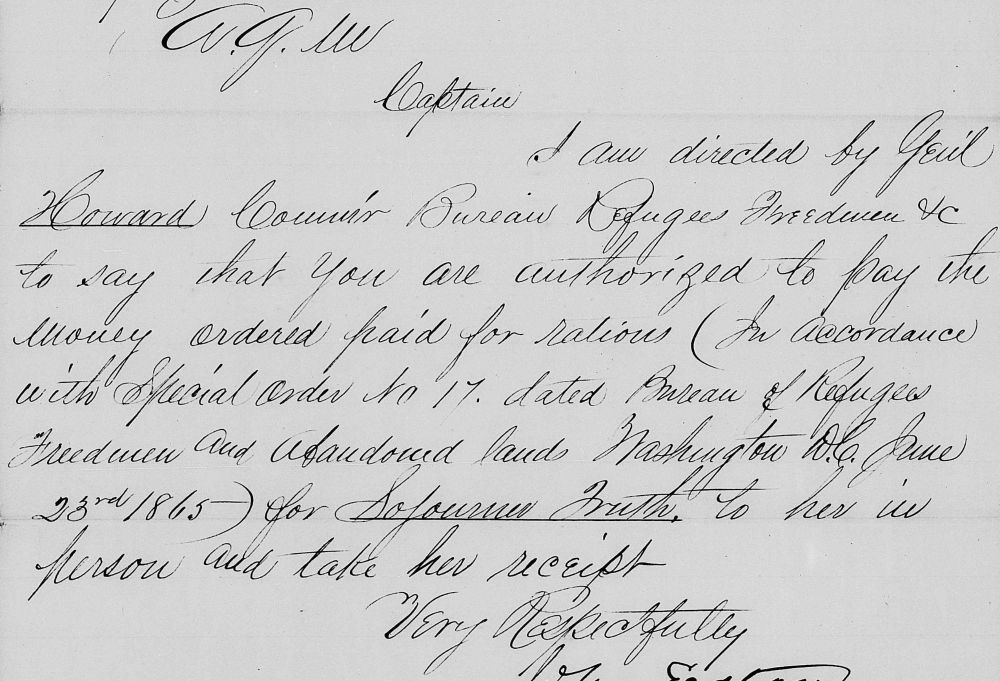 A.Q.M
Captain
I am directed by Genl
Howard Commr Bureau Refugees Freedmen &c
to say that You are authorized to pay the
Money ordered paid for rations (In accordance
with Special Order No 17. dated Bureau of Refugees
Freedmen and Abandoned lands Washington D.C. June
23rd 1865) for Sojourner Truth. to her in
person and take her receipt
Very Respectfully
John Eaton